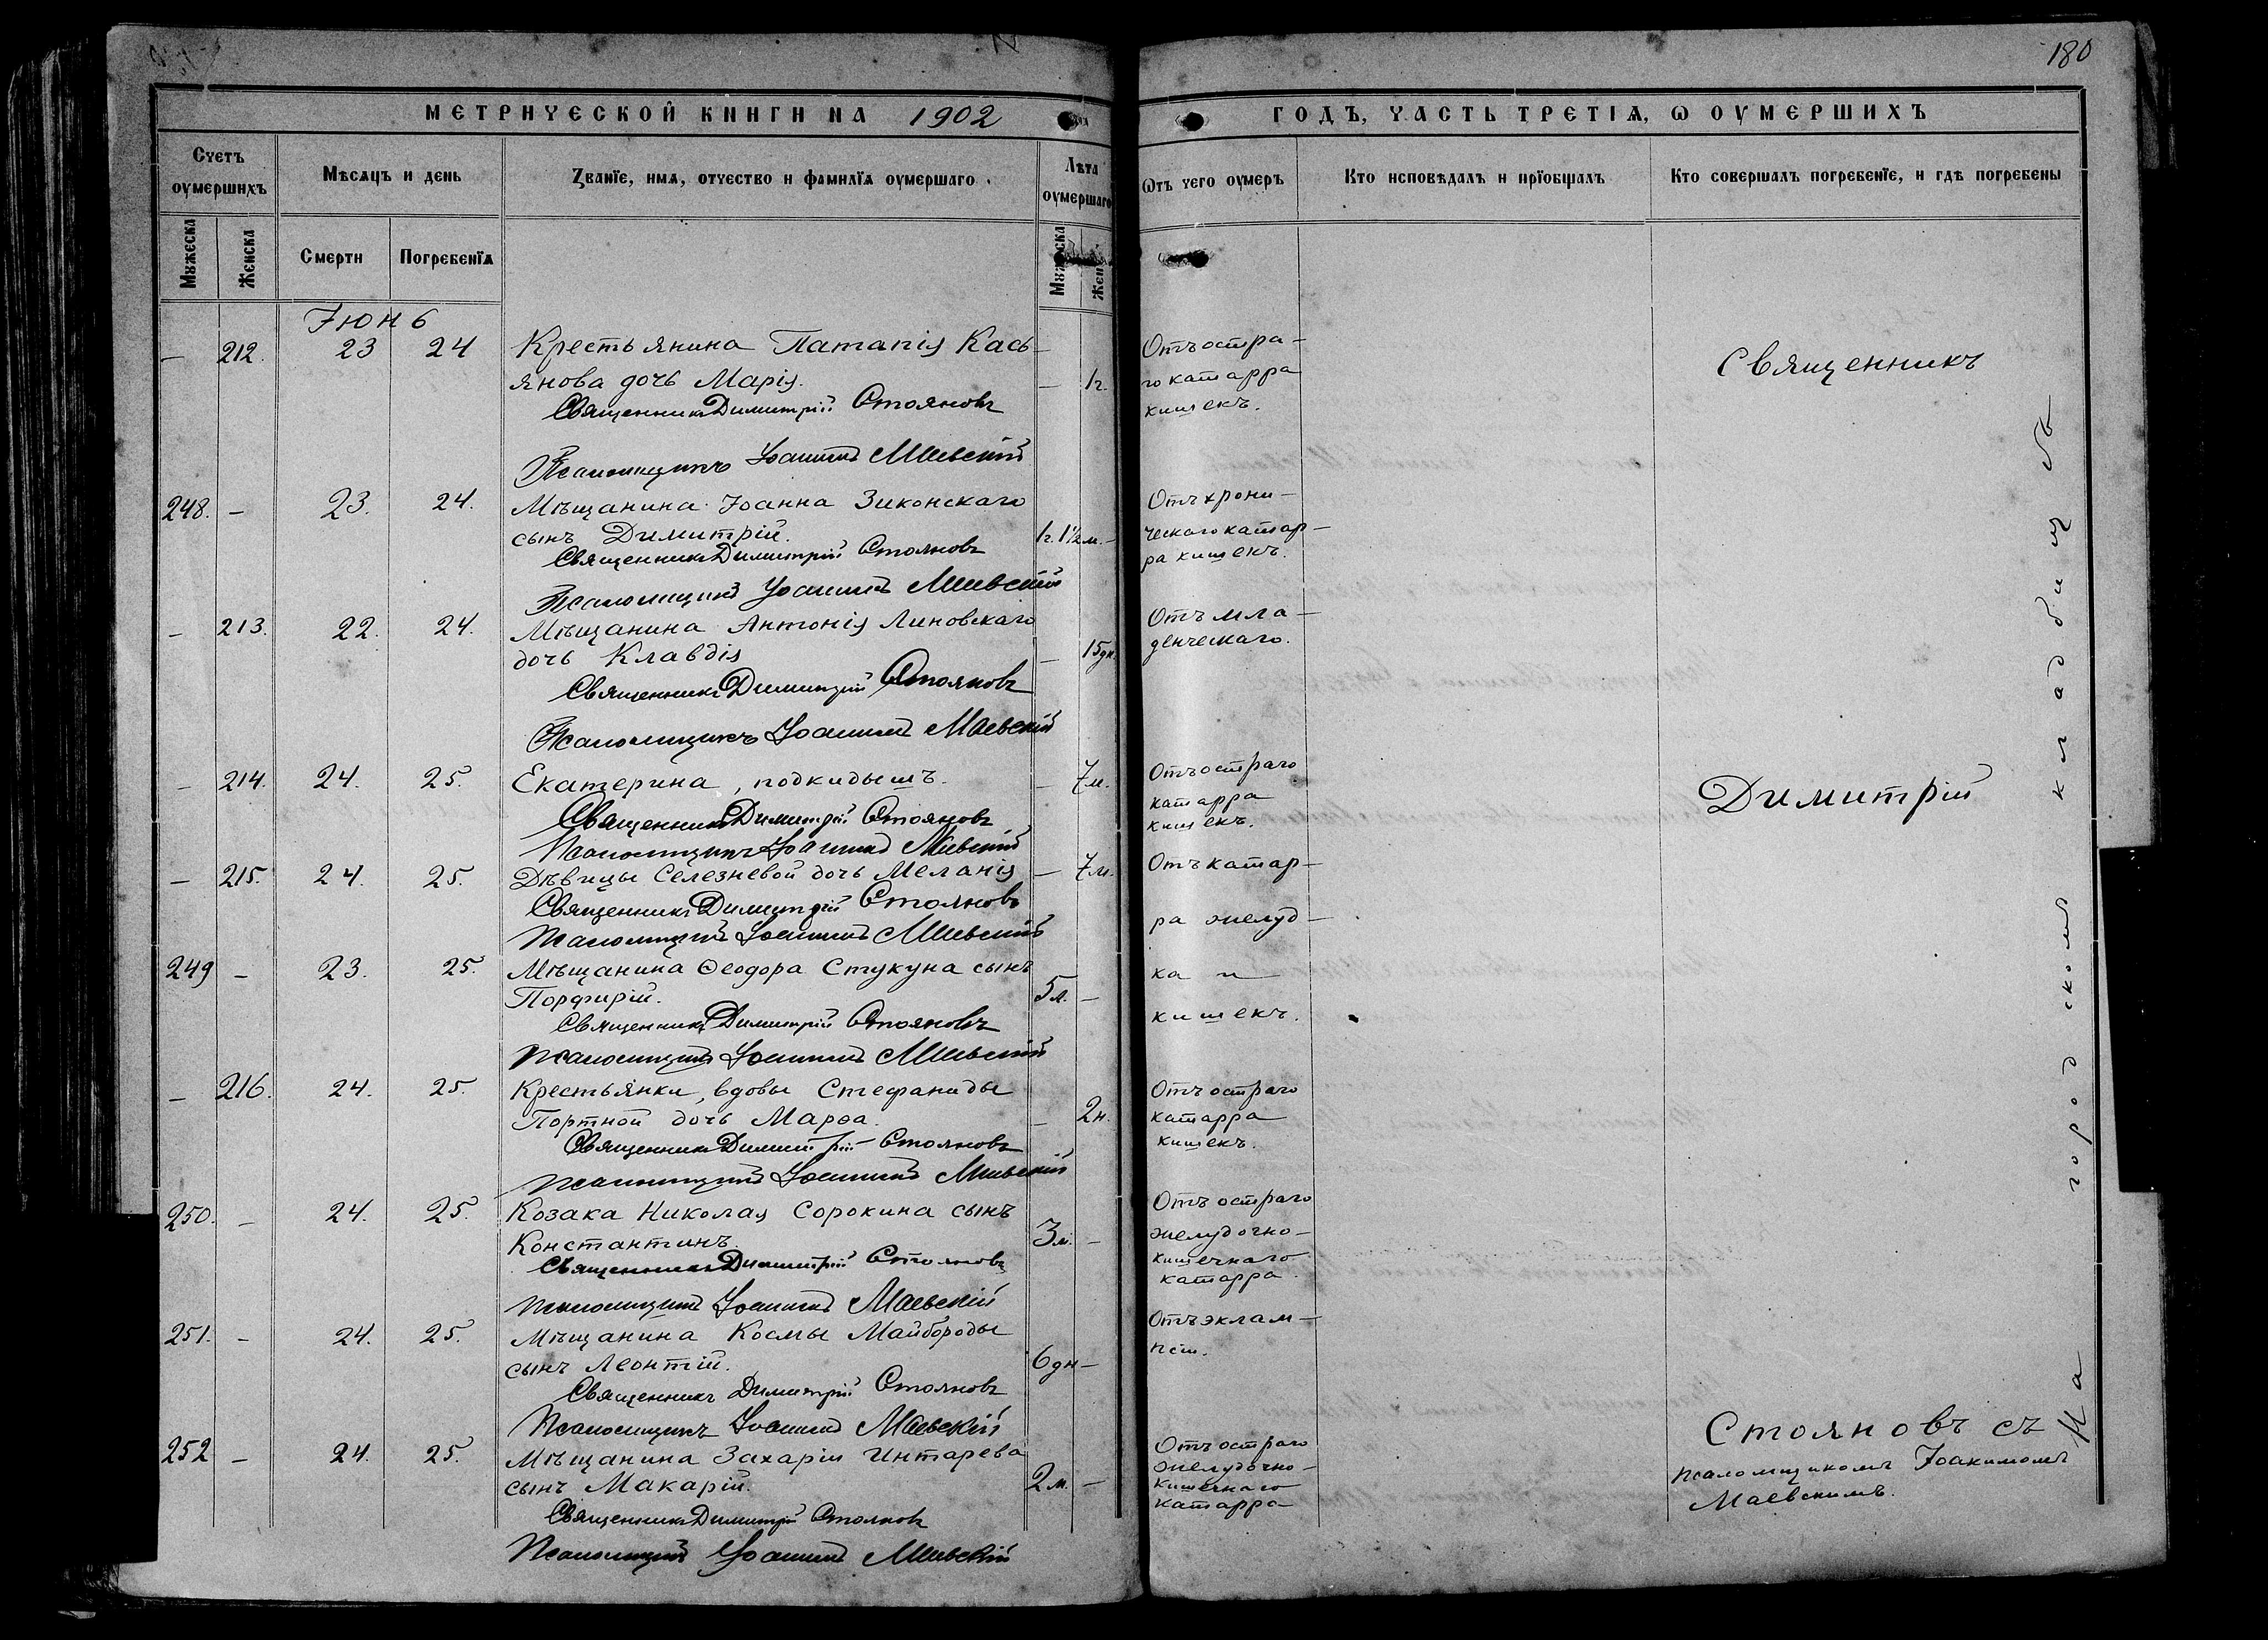 180
МЕТРИЧЕСКОЙ КНИГИ НА 1902 ГОДЪ, ЧАСТЬ ТРЕТІѦ, Ѡ ОУМЕРШИХЪ
Счетъ оумершихъ
Мѣсѧцъ и день
Званїе, имѧ, отчество и фамилїѧ оумершаго
Лѣта оумершаго
Ѿтъ чего оумеръ
Кто исповѣдалъ и прїобщалъ
Кто совершалъ погребенїе, и гдѣ погребены
Мужеска
Женска
Смерти
Погребенїѧ
Мужеска
Жен
Іюнь
— 212. 23 24 Крестьянина Патапія Кась-
янова дочь Марія. — 1г.
Священникъ Димитрій Стояновъ
Псаломщикъ Іоакимъ Маевскій
Отъ остра-
го катарра
кишекъ.
248. — 23. 24. Мѣщанина Іоанна Зиконскаго
сынъ Димитрій. 1г. 1½м. —
Священникъ Димитрій Стояновъ
Псаломщикъ Іоакимъ Маевскій
Отъ хрони-
ческаго катар-
ра кишекъ.
— 213. 22. 24. Мѣщанина Антонія Линовскаго
дочь Клавдія — 15дн.
Священникъ Димитрій Стояновъ
Псаломщикъ Іоакимъ Маевскій
Отъ мла-
денческаго.
— 214. 24. 25. Екатерина, подкидышъ. — 7м.
Священникъ Димитрій Стояновъ
Псаломщикъ Іоакимъ Маевскій
Отъ остраго
катарра
кишекъ.
— 215. 24. 25. Дѣвицы Селезневой дочь Меланія — 7м.
Священникъ Димитрій Стояновъ
Псаломщикъ Іоакимъ Маевскій
Отъ катар-
ра желуд-
ка и
кишекъ.
249 — 23. 25. Мѣщанина Ѳеодора Стукуна сынъ
Порфирій. 5л. —
Священникъ Димитрій Стояновъ
Псаломщикъ Іоакимъ Маевскій
— 216. 24. 25. Крестьянки, вдовы Стефаниды
Портной дочь Марѳа. — 2н.
Священникъ Димитрій Стояновъ
Псаломщикъ Іоакимъ Маевскій
Отъ остраго
катарра
кишекъ.
250. — 24. 25. Козака Николая Сорокина сынъ
Константинъ. 3м. —
Священникъ Димитрій Стояновъ
Псаломщикъ Іоакимъ Маевскій
Отъ остраго
желудочно-
кишечнаго
катарра.
251. — 24. 25. Мѣщанина Космы Майбороды
сынъ Леонтій. 6дн —
Священникъ Димитрій Стояновъ
Псаломщикъ Іоакимъ Маевскій
Отъ эклам-
псіи.
252 — 24. 25. Мѣщанина Захарія Интарева
сынъ Макарій. 2м. —
Священникъ Димитрій Стояновъ
Псаломщикъ Іоакимъ Маевскій
Отъ остраго
желудочно-
кишечнаго
катарра
Священникъ
Димитрій
Стояновъ съ
псаломщикомъ Іоакимомъ
Маевскимъ.
На городскомъ кладбищѣ